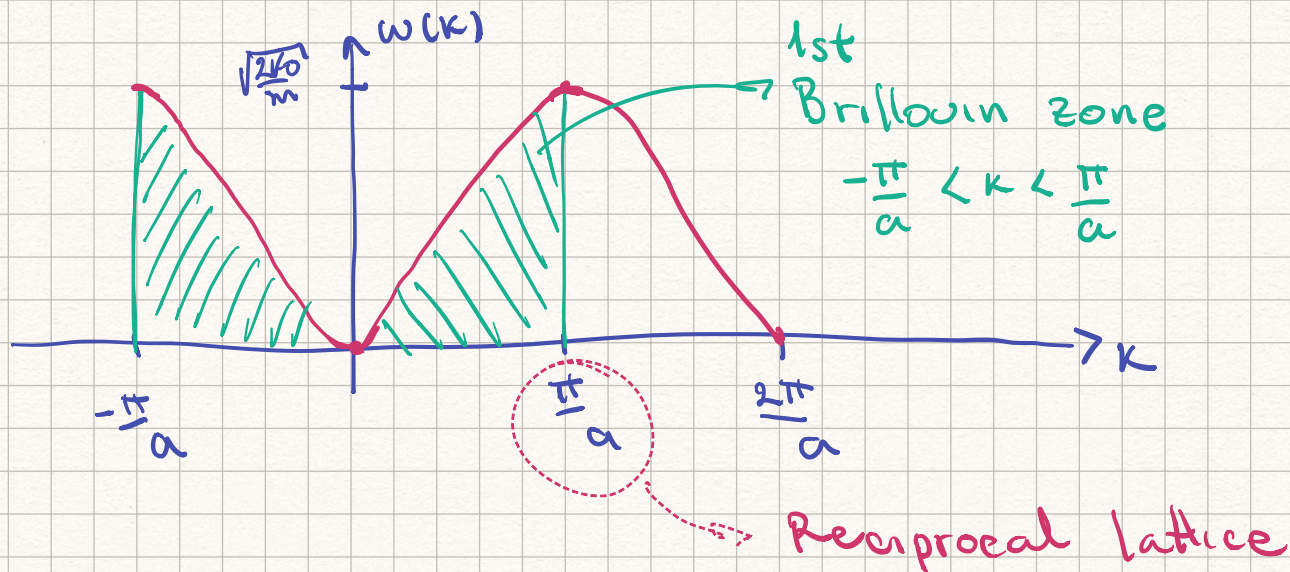 ω(k)
√(2k₀/m)
1st
Brillouin zone
-π/a < k < π/a
k
-π/a
π/a
2π/a
Reciprocal lattice